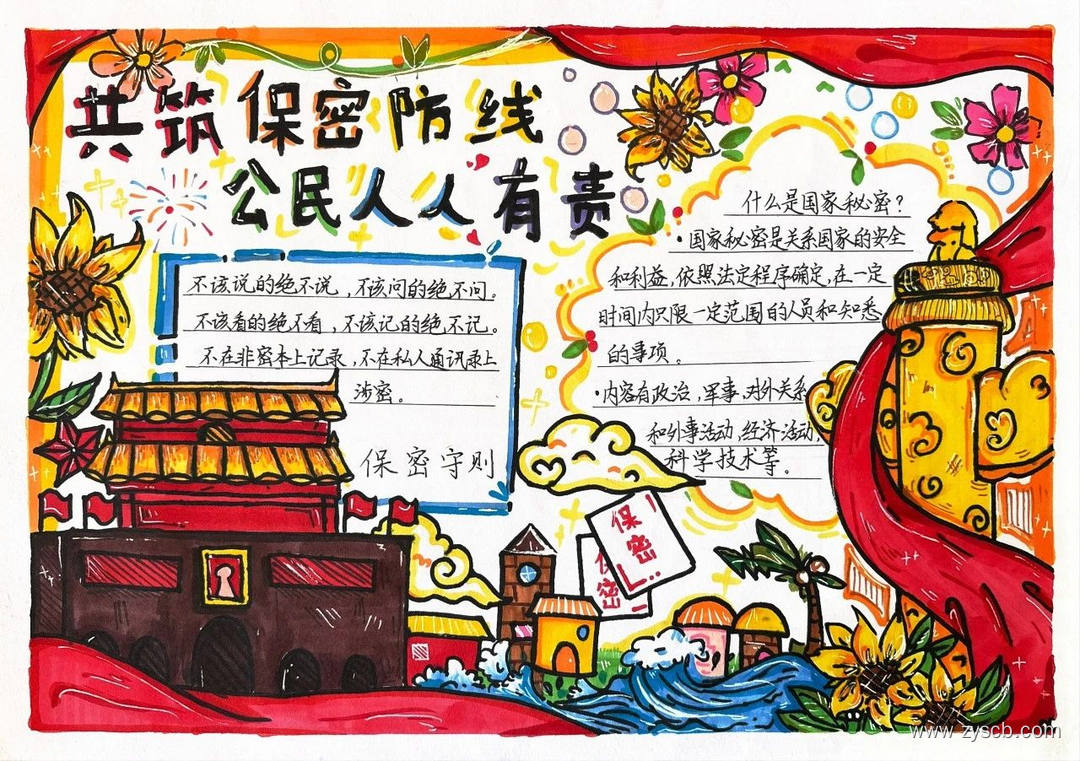 共筑保密防线
公民人人有责
不该说的绝不说，不该问的绝不问。
不该看的绝不看，不该记的绝不记。
不在非密本上记录，不在私人通讯录上
涉密。
保密守则
什么是国家秘密？
·国家秘密是关系国家的安全
和利益，依照法定程序确定，在一定
时间内只限一定范围的人员和知悉
的事项。
·内容有政治，军事，对外关系
和外事活动，经济活动，
科学技术等。
保密！
保密
www.zyscb.com